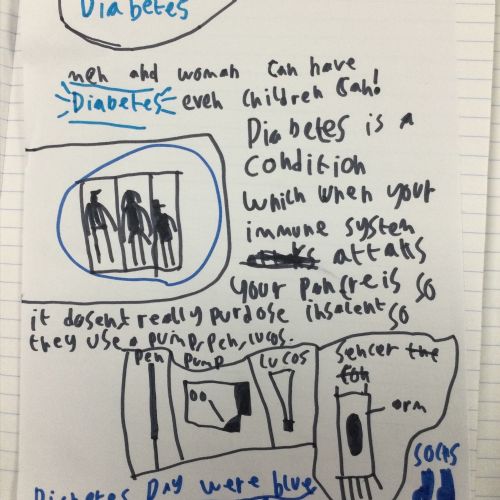 Diabetes
men and woman can have
Diabetes even children can!
Diabetes is a
condition
which when your
immune system
attaks
your pancreis so
it dosent really purdose insalent so
they use a pump, pen, lucos.
Pen
Pump
Lucos
Sencer the
arm
socks
Diabetes Day were blue